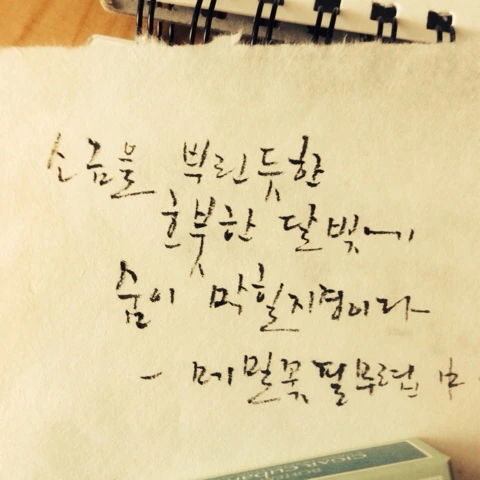 소금을 뿌린듯한
흐붓한 달빛에
숨이 막힐지경이다
- 메밀꽃필무렵 中 -
CIGAR